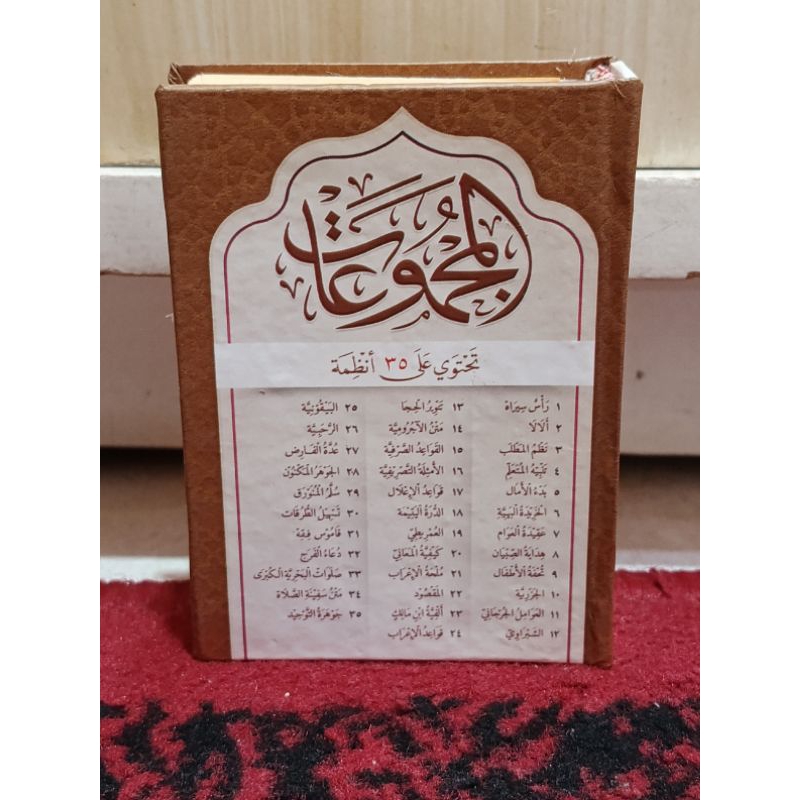 المجموعات
تحتوي على ٣٥ أنظمة
١ رَأْسْ سِيرَاهْ
٢ أَلَالَا
٣ نَظْمُ المَطْلَبِ
٤ تَنْبِيْهُ المُتَعَلِّمِ
٥ بَدْءُ الْأَمَالِ
٦ الخَرِيْدَةُ البَهِيَّةِ
٧ عَقِيْدَةُ العَوَامِ
٨ هِدَايَةُ الصِّبْيَانِ
٩ تُحْفَةُ الْأَطْفَالِ
١٠ الجَزَرِيَّةِ
١١ العَوَامِلُ الجُرْجَانِيْ
١٢ الشَّبْرَاوِيْ
١٣ تَنْوِيْرُ الحِجَا
١٤ مَتْنُ الْآجُرُومِيَّةِ
١٥ القَوَاعِدُ الصَّرْفِيَّةِ
١٦ الْأَمْثِلَةُ التَّصْرِيْفِيَّةِ
١٧ قَوَاعِدُ الْإِعْلَالِ
١٨ الدُّرَّةُ اليَتِيْمَةِ
١٩ العُمْرِيْطِيْ
٢٠ كَيْفِيَّةُ المَعَانِيْ
٢١ مُلْحَةُ الْإِعْرَابِ
٢٢ المَقْصُوْدِ
٢٣ أَلْفِيَّةُ ابْنِ مَالِكٍ
٢٤ قَوَاعِدُ الْإِعْرَابِ
٢٥ البَيْقُوْنِيَّةِ
٢٦ الرَّحَبِيَّةِ
٢٧ عُدَّةُ الفَارِضِ
٢٨ الجَوْهَرُ المَكْنُوْنِ
٢٩ سُلَّمُ المُنَوْرَقِ
٣٠ تَسْهِيْلُ الطُّرُقَاتِ
٣١ قَامُوْس فِقِهْ
٣٢ دُعَاءُ الفَرَجِ
٣٣ صَلَوَاتْ البَحْرِيَّةِ الكُبْرَى
٣٤ مَتْنُ سَفِيْنَةِ الصَّلَاةِ
٣٥ جَوْهَرَةُ التَّوْحِيْدِ